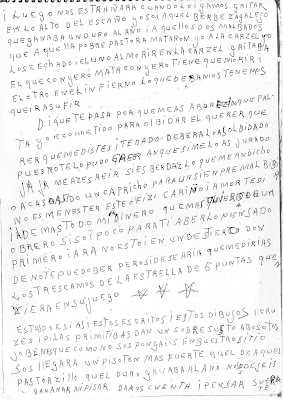 i LUEGO NOS ESTRAÑARA CUANDO LOIGAMOS GRITAR
EN LO ALTO DEL ESCAÑO YO SOI AQUEL BERBE ZAGALEJO
QUE GANABA UN DURO AL AÑO i A QUELLOS DOS MALBADOS
QUE A QUELLA POBRE PASTORA MATARON YO A LA CARZEL
LOS EchADO i EL UNO AL MORIR EN LA CARZEL GRITABA
EL QUE CON YERO MATA CON YERO TIENE QUE MORIR i
EL OTRO EN EL INFIERNO LO QUE DEBAMOS TENEMOS
QUEIRASUFIR
DiQUETE PASA POR QUE MCAS ABO QUE FAL
TA YO i COMETIDO PARA OLBIDAR EL QUERER QUE
RER QUE MEDISTES iTEDADO DEBERA LO AS OLBIDADO
PUES NO TE LO PUDO ANQUE SI MELO AS JURADO
JAJA ME AZES REIR SI ES BERDAZ LO QUE ME AN DICHO
O ACASO UN CAPRICHO PARA UN SIEMPRE MAL BIDO
NO ES MENBSTER ESTEOFIZI CARIÑO i AMOR TEDI
iADEMAS TODO MI DINERO QUE MAS QUIERES DE UN
OBRERO SI SOI POCO PARA Ti ABERLO PENSADO
PRIMERO iARA NO ESTOI EN UN DESTIERO DON
DE NO TE PUEDO BER PERO SI DESEARIA QUE ME DIRIAS
LOS TRES CAMOS DE LA ESTRELLA DE 5 PUNTAS QUE
ZIERA EN SU JUEGO
ESTUDO ESi ASi ESTOS ESCRITOS i ESTOS DIBUJOS i CRU
ZES i PILAS PRIMITIBAS DAN UN SOBRE SUSTO ABOSOTOS
JOBENES QUE COMO NO SOS PONGAIIS EN BUESTRO SITIO
SOS LLEGARA UN PISOTON MAS FUERTE QUEL DE AQUEL
PASTORZILLO QUEL DURO GANABA AL AÑO NO SDEJEIS
GANAR NI PISAR DAROS CUENTA i PENSAR SUERTE